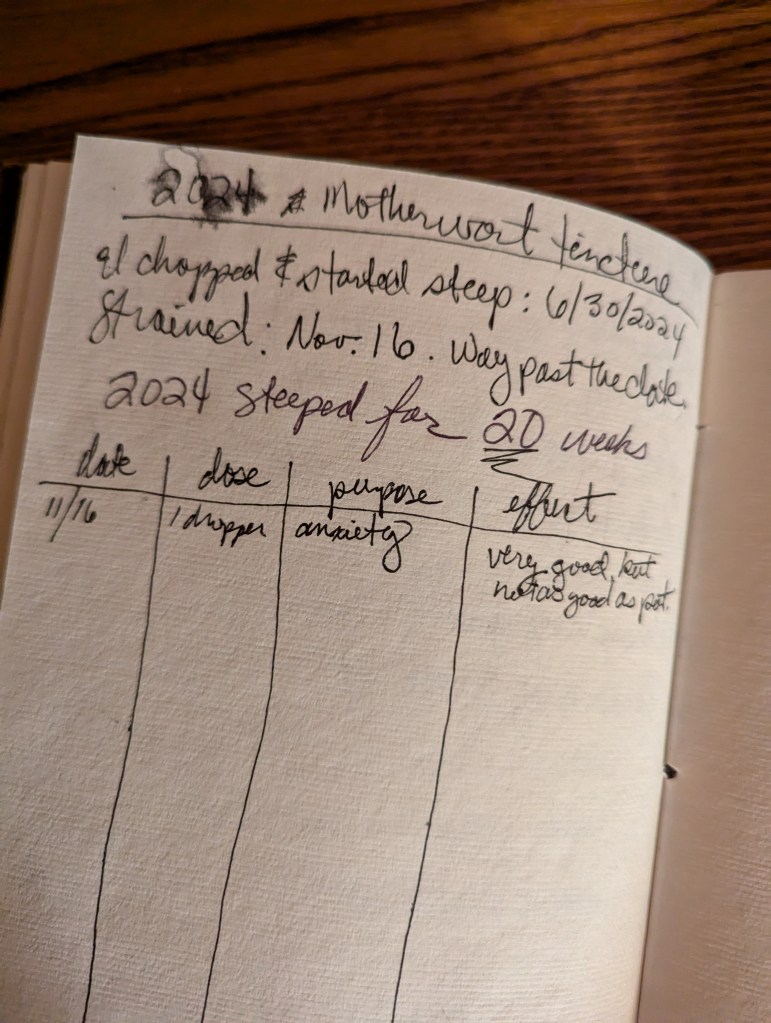 2024 Motherwort tincture
chopped & started steep: 6/30/2024
Strained: Nov. 16. Way past the date.
2024 steeped for 20 weeks
date dose purpose effect
11/16 1 dropper anxiety very good, but
not as good as pot.